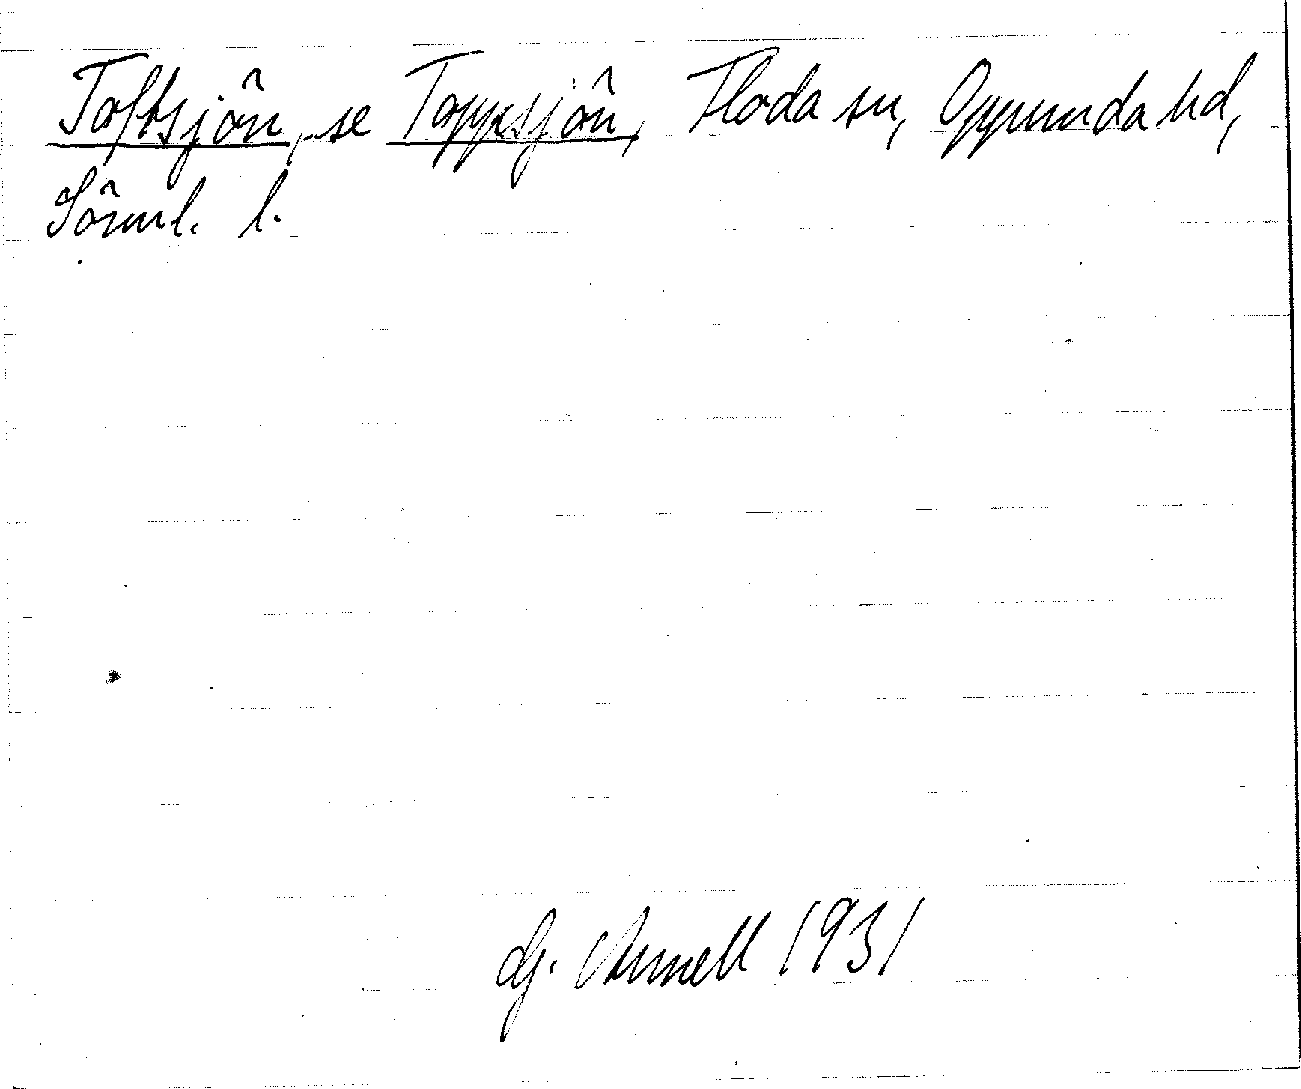 Toftsjön, se Toppsjön, Floda sn, Oppunda hd,
Sörml. l.
G. Arnell 1931